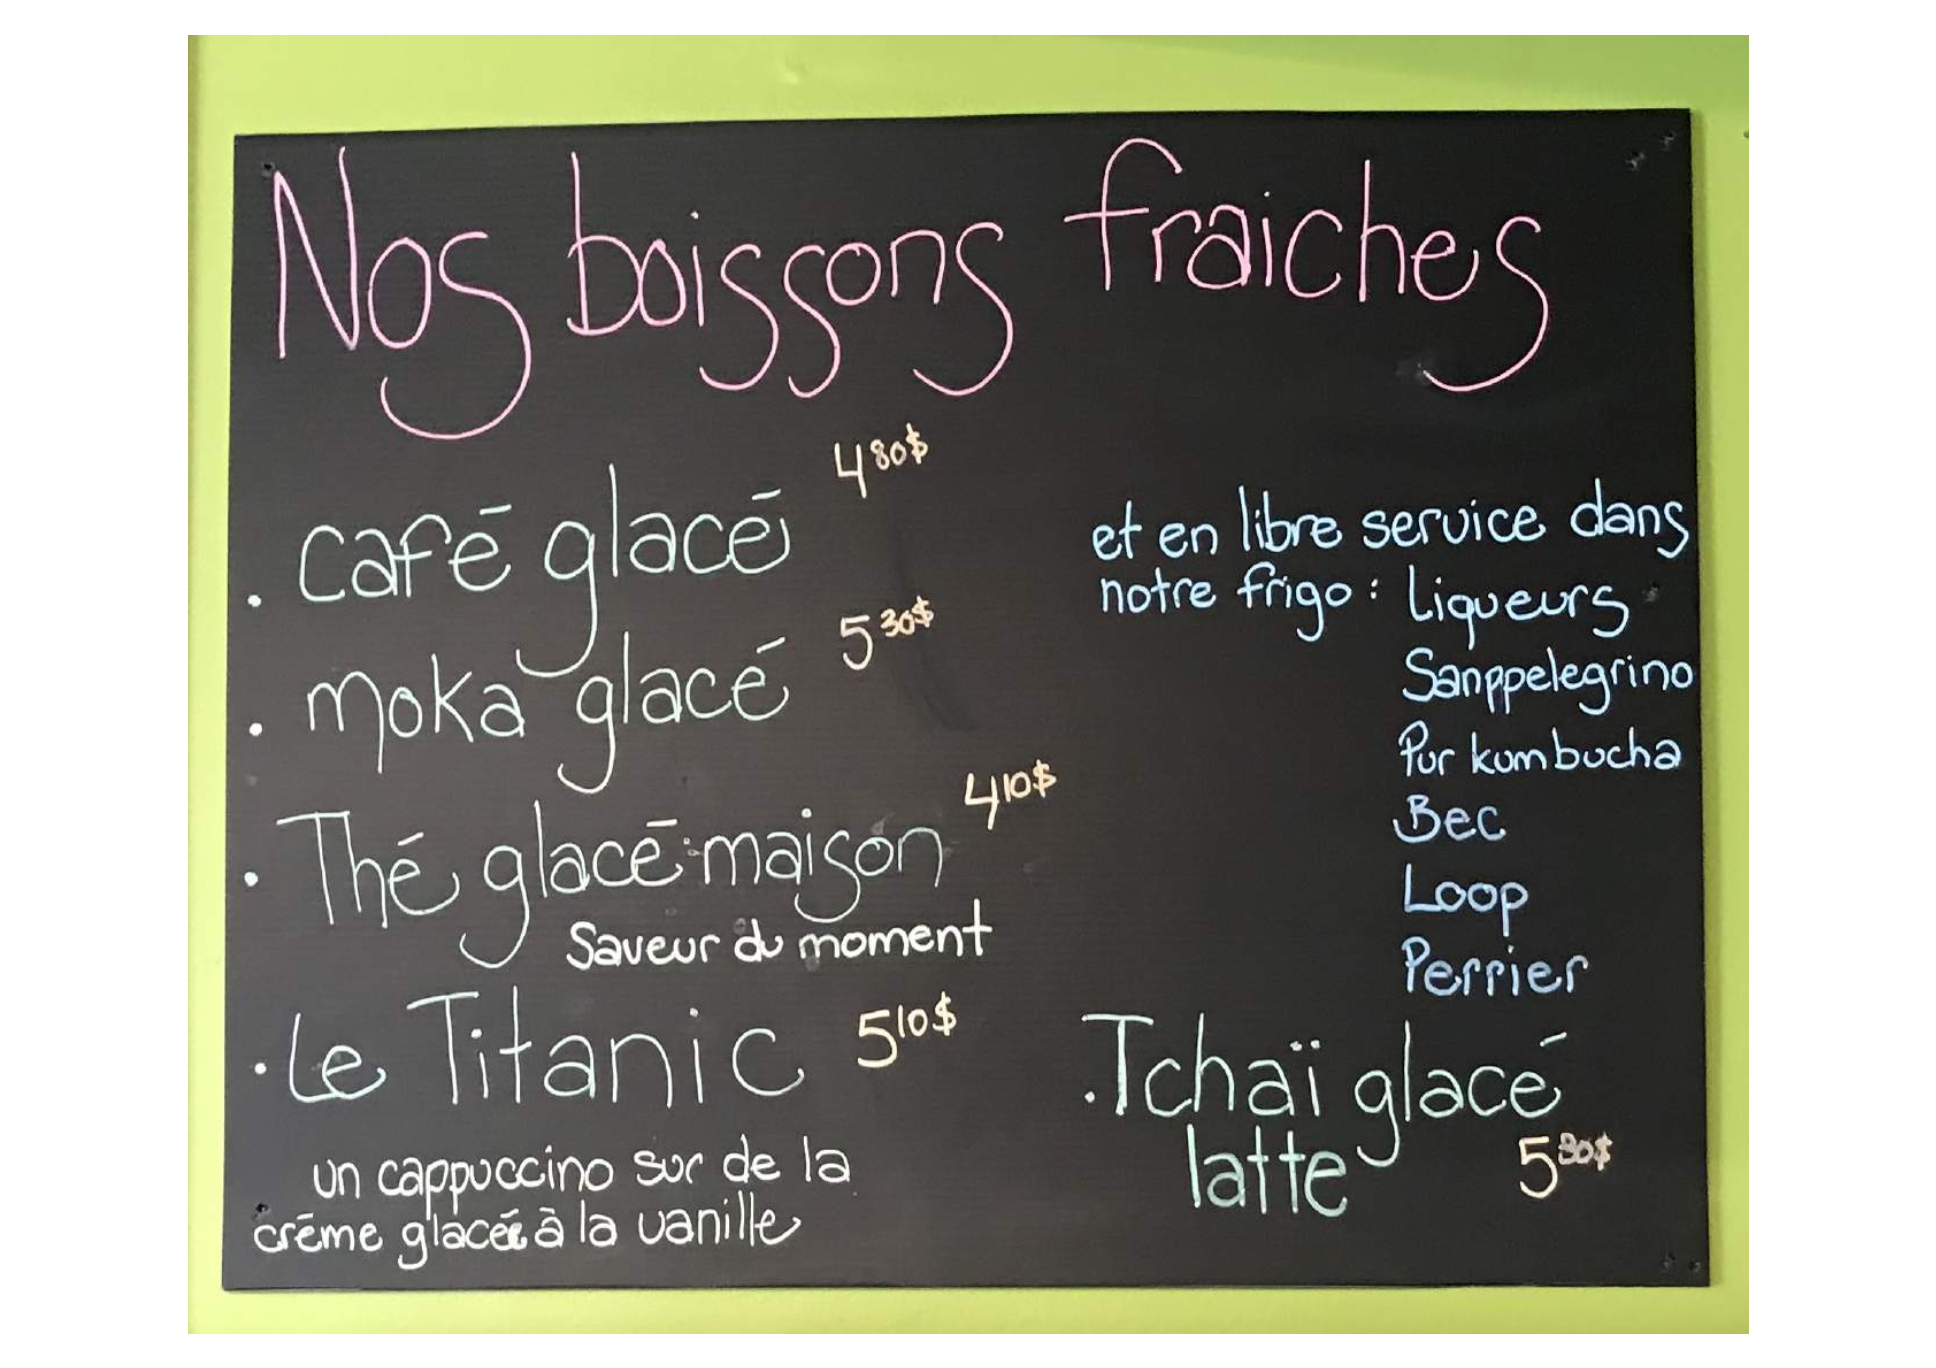 Nos boissons fraiches
. café glacé 4 80$
. moka glacé 5 30$
. Thé glacé maison 4 10$
Saveur du moment
. Le Titanic 5 10$
un cappuccino sur de la
crème glacée à la vanille
et en libre service dans
notre frigo : Liqueurs
Sanppelegrino
Pur kombucha
Bec
Loop
Perrier
. Tchaï glacé
latte 5 30$